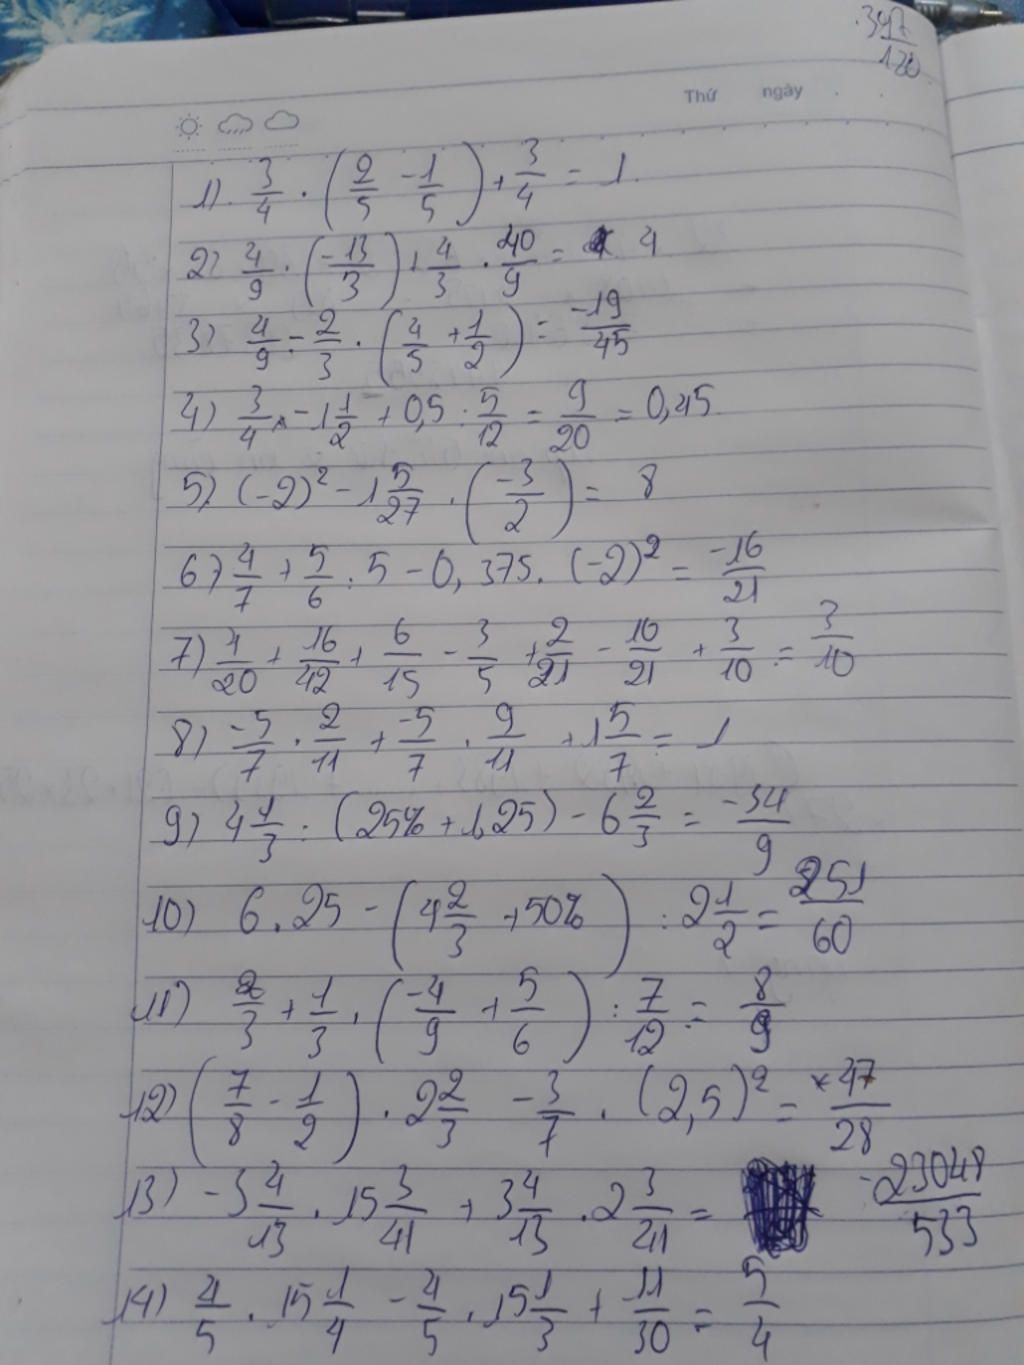 347/120
Thứ ngày
1). 3/4 . (2/5 - 1/5) + 3/4 = 1.
2) 4/9 . (-13/3) + 4/3 . 40/9 = 4
3) 4/9 - 2/3 . (4/5 + 1/2) = -19/45
4) 3/4 . -1 1/2 + 0,5 : 5/12 = 9/20 = 0,45
5) (-2)² - 1 5/27 . (-3/2) = 8
6) 4/7 + 5/6 : 5 - 0,375. (-2)² = -16/21
7) 4/20 + 16/42 + 6/15 - 3/5 + 2/21 - 10/21 + 3/10 = 3/10
8) -5/7 . 2/11 + -5/7 . 9/11 + 1 5/7 = 1
9) 4 1/3 : (25% + 1,25) - 6 2/3 = -34/9
10) 6.25 - (4 2/3 + 50%) : 2 1/2 = 251/60
11) 2/3 + 1/3 . (-4/9 + 5/6) : 7/12 = 8/9
12) (7/8 - 1/2) . 2 2/3 - 3/7 . (2,5)² = -47/28
13) -3 4/13 . 15 3/41 + 3 4/13 . 2 3/41 = -23048/533
14) 4/5 . 15 1/4 - 4/5 . 15 1/3 + 11/30 = 5/4